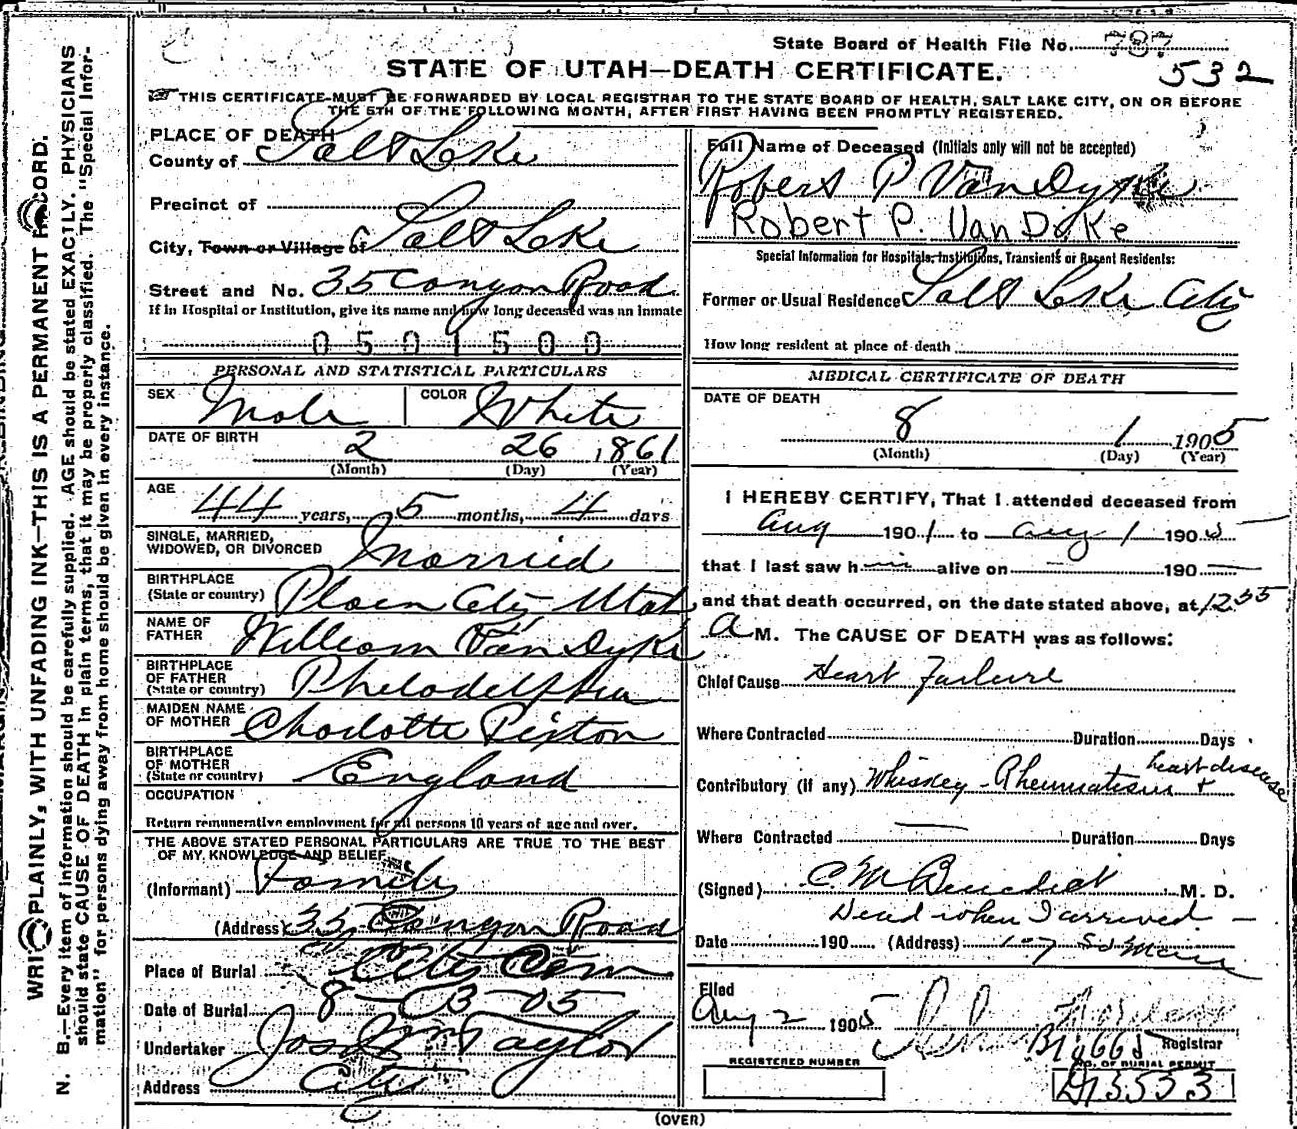 State Board of Health File No. 787
532
STATE OF UTAH—DEATH CERTIFICATE.
THIS CERTIFICATE MUST BE FORWARDED BY LOCAL REGISTRAR TO THE STATE BOARD OF HEALTH, SALT LAKE CITY, ON OR BEFORE
THE 5TH OF THE FOLLOWING MONTH, AFTER FIRST HAVING BEEN PROMPTLY REGISTERED.
PLACE OF DEATH
County of Salt Lake
Precinct of
City, Town or Village of Salt Lake
Street and No. 35 Canyon Road
If in Hospital or Institution, give its name and how long deceased was an inmate
0501500
PERSONAL AND STATISTICAL PARTICULARS
SEX Male COLOR White
DATE OF BIRTH 2 26 1861
(Month) (Day) (Year)
AGE 44 years, 5 months, 4 days
SINGLE, MARRIED,
WIDOWED, OR DIVORCED Married
BIRTHPLACE
(State or country) Plain City Utah
NAME OF
FATHER William Van Dyke
BIRTHPLACE
OF FATHER
(State or country) Philadelphia
MAIDEN NAME
OF MOTHER Charlotte Pixton
BIRTHPLACE
OF MOTHER
(State or country) England
OCCUPATION
Return remunerative employment for all persons 10 years of age and over.
THE ABOVE STATED PERSONAL PARTICULARS ARE TRUE TO THE BEST
OF MY KNOWLEDGE AND BELIEF
(Informant) Family
(Address) 35 Canyon Road
Place of Burial City Cem
Date of Burial 8-3-05
Undertaker Jos Wm Taylor
Address City
Full Name of Deceased (Initials only will not be accepted)
Robert P Van Dyke
Robert P. Van Dyke
Special Information for Hospitals, Institutions, Transients or Recent Residents:
Former or Usual Residence Salt Lake City
How long resident at place of death
MEDICAL CERTIFICATE OF DEATH
DATE OF DEATH
8 1 1905
(Month) (Day) (Year)
I HEREBY CERTIFY, That I attended deceased from
Aug 1901 to Aug 1 1905
that I last saw him alive on 190
and that death occurred, on the date stated above, at 12.55
A M. The CAUSE OF DEATH was as follows:
Chief Cause Heart Failure
Where Contracted Duration Days
Contributory (if any) Whiskey - Rheumatism + heart disease
Where Contracted Duration Days
(Signed) C M Benedict M. D.
Dead when I arrived —
Date 190 (Address) So Main
Filed
Aug 2 1905
Registrar
REGISTERED NUMBER
NO. OF BURIAL PERMIT
D13553
(OVER)
WRITE PLAINLY, WITH UNFADING INK—THIS IS A PERMANENT RECORD.
N. B.—Every item of information should be carefully supplied. AGE should be stated EXACTLY. PHYSICIANS
should state CAUSE OF DEATH in plain terms, that it may be properly classified. The "Special Infor-
mation" for persons dying away from home should be given in every instance.